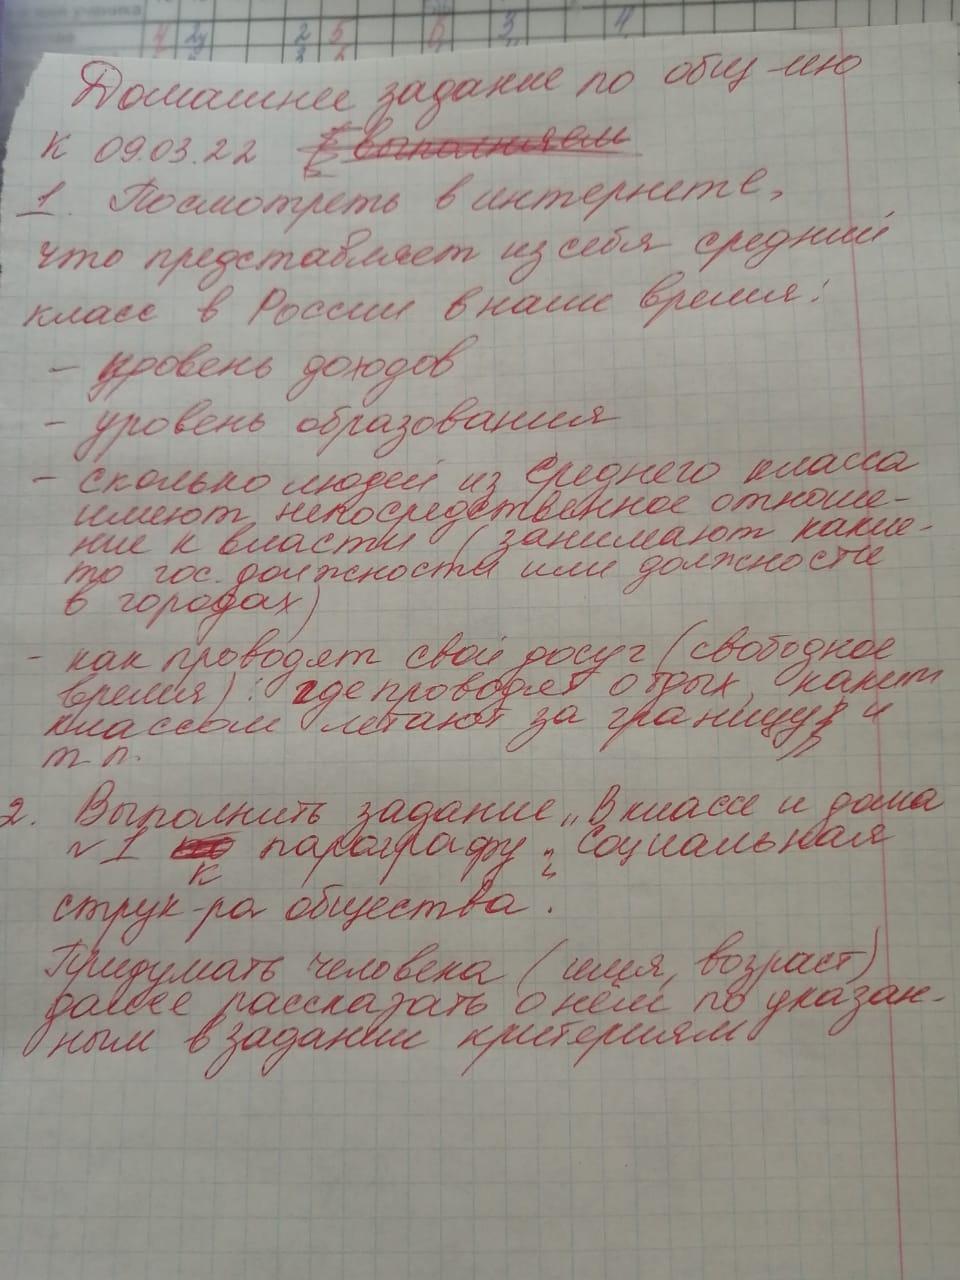 ученика
4 2у 2 5 6 3 4
Домашнее задание по общ-ию
к 09.03.22 выполняем
1. Посмотреть в интернете,
что представляет из себя средний
класс в России в наше время:
- уровень доходов
- уровень образования
- сколько людей из среднего класса
имеют непосредственное отноше-
ние к власти (занимают какие-
то гос. должности или должности
в городах)
- как проводят свой досуг (свободное
время): где проводят отдых, каким
классом летают за границу и
т п.
2. Выполнить задание „В классе и дома
№1 к параграфу: Социальная
струк-ра общества.
Придумать человека (имя, возраст)
далее рассказать о нём по указан-
ным в задании критериям